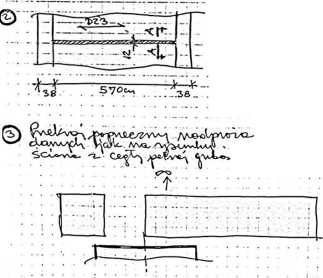 2
DZ3
A A
12
38 570cm 38
3 Przekrój poprzeczny nadproża
danych jak na rysunku.
Ściana z cegły pełnej grubo
∞